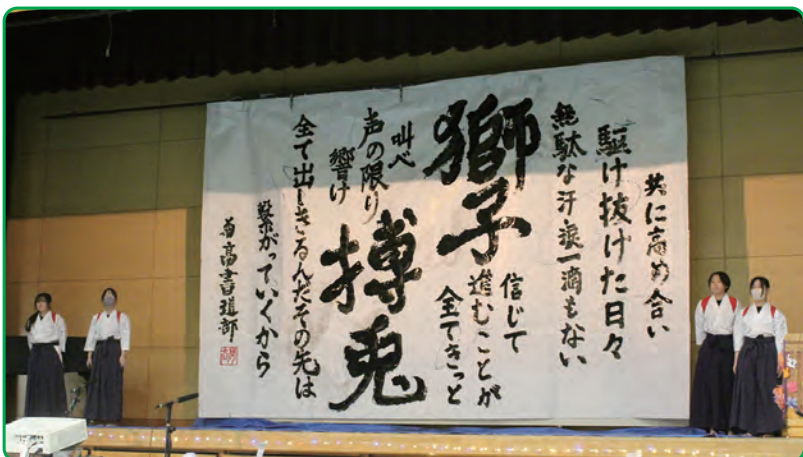 共に高め合い
駆け抜けた日々
無駄な汗涙一滴もない
獅子
信じて
進むことが
全てきっと
搏兎
叫べ
声の限り
響け
全て出しきるんだその先は
繋がっていくから
高書道部